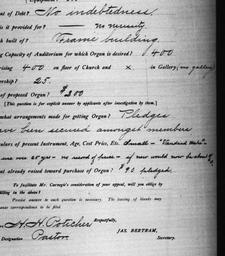 nt of Debt? No indebtedness.
is it provided for? — no necessity
ch built of? Frame building.
g Capacity of Auditorium for which Organ is desired? 400
rising 400 on floor of Church and x in Gallery, (no gallery)
bership? 25.
of proposed Organ? $
[This question is for explicit answer by applicants after investigation by them.]
what arrangements made for getting Organ? Pledges
ve been secured amongst members
culars of present Instrument, Age, Cost Price, Etc. Small
over
nt already raised toward purchase of Organ? $ pledged.
To facilitate Mr. Carnegie's consideration of your appeal, will you oblige by
filling in the above?
Precise answer to each question is necessary. The leaving of blanks may
mean correspondence to be filed.
Respectfully,
H. H.
JAS. BERTRAM,
Designation Pastor
Secretary.